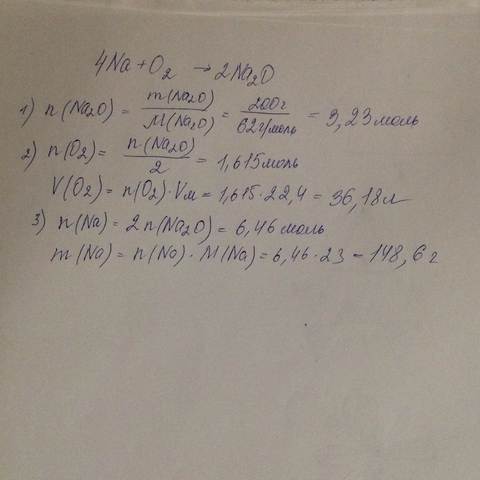 4Na + O₂ → 2Na₂O
1) n(Na₂O) = m(Na₂O)/M(Na₂O) = 200г/62г/моль = 3,23 моль
2) n(O₂) = n(Na₂O)/2 = 1,615 моль
V(O₂) = n(O₂)·Vм = 1,615·22,4 = 36,18 л
3) n(Na) = 2n(Na₂O) = 6,46 моль
m(Na) = n(Na)·M(Na) = 6,46·23 = 148,6 г